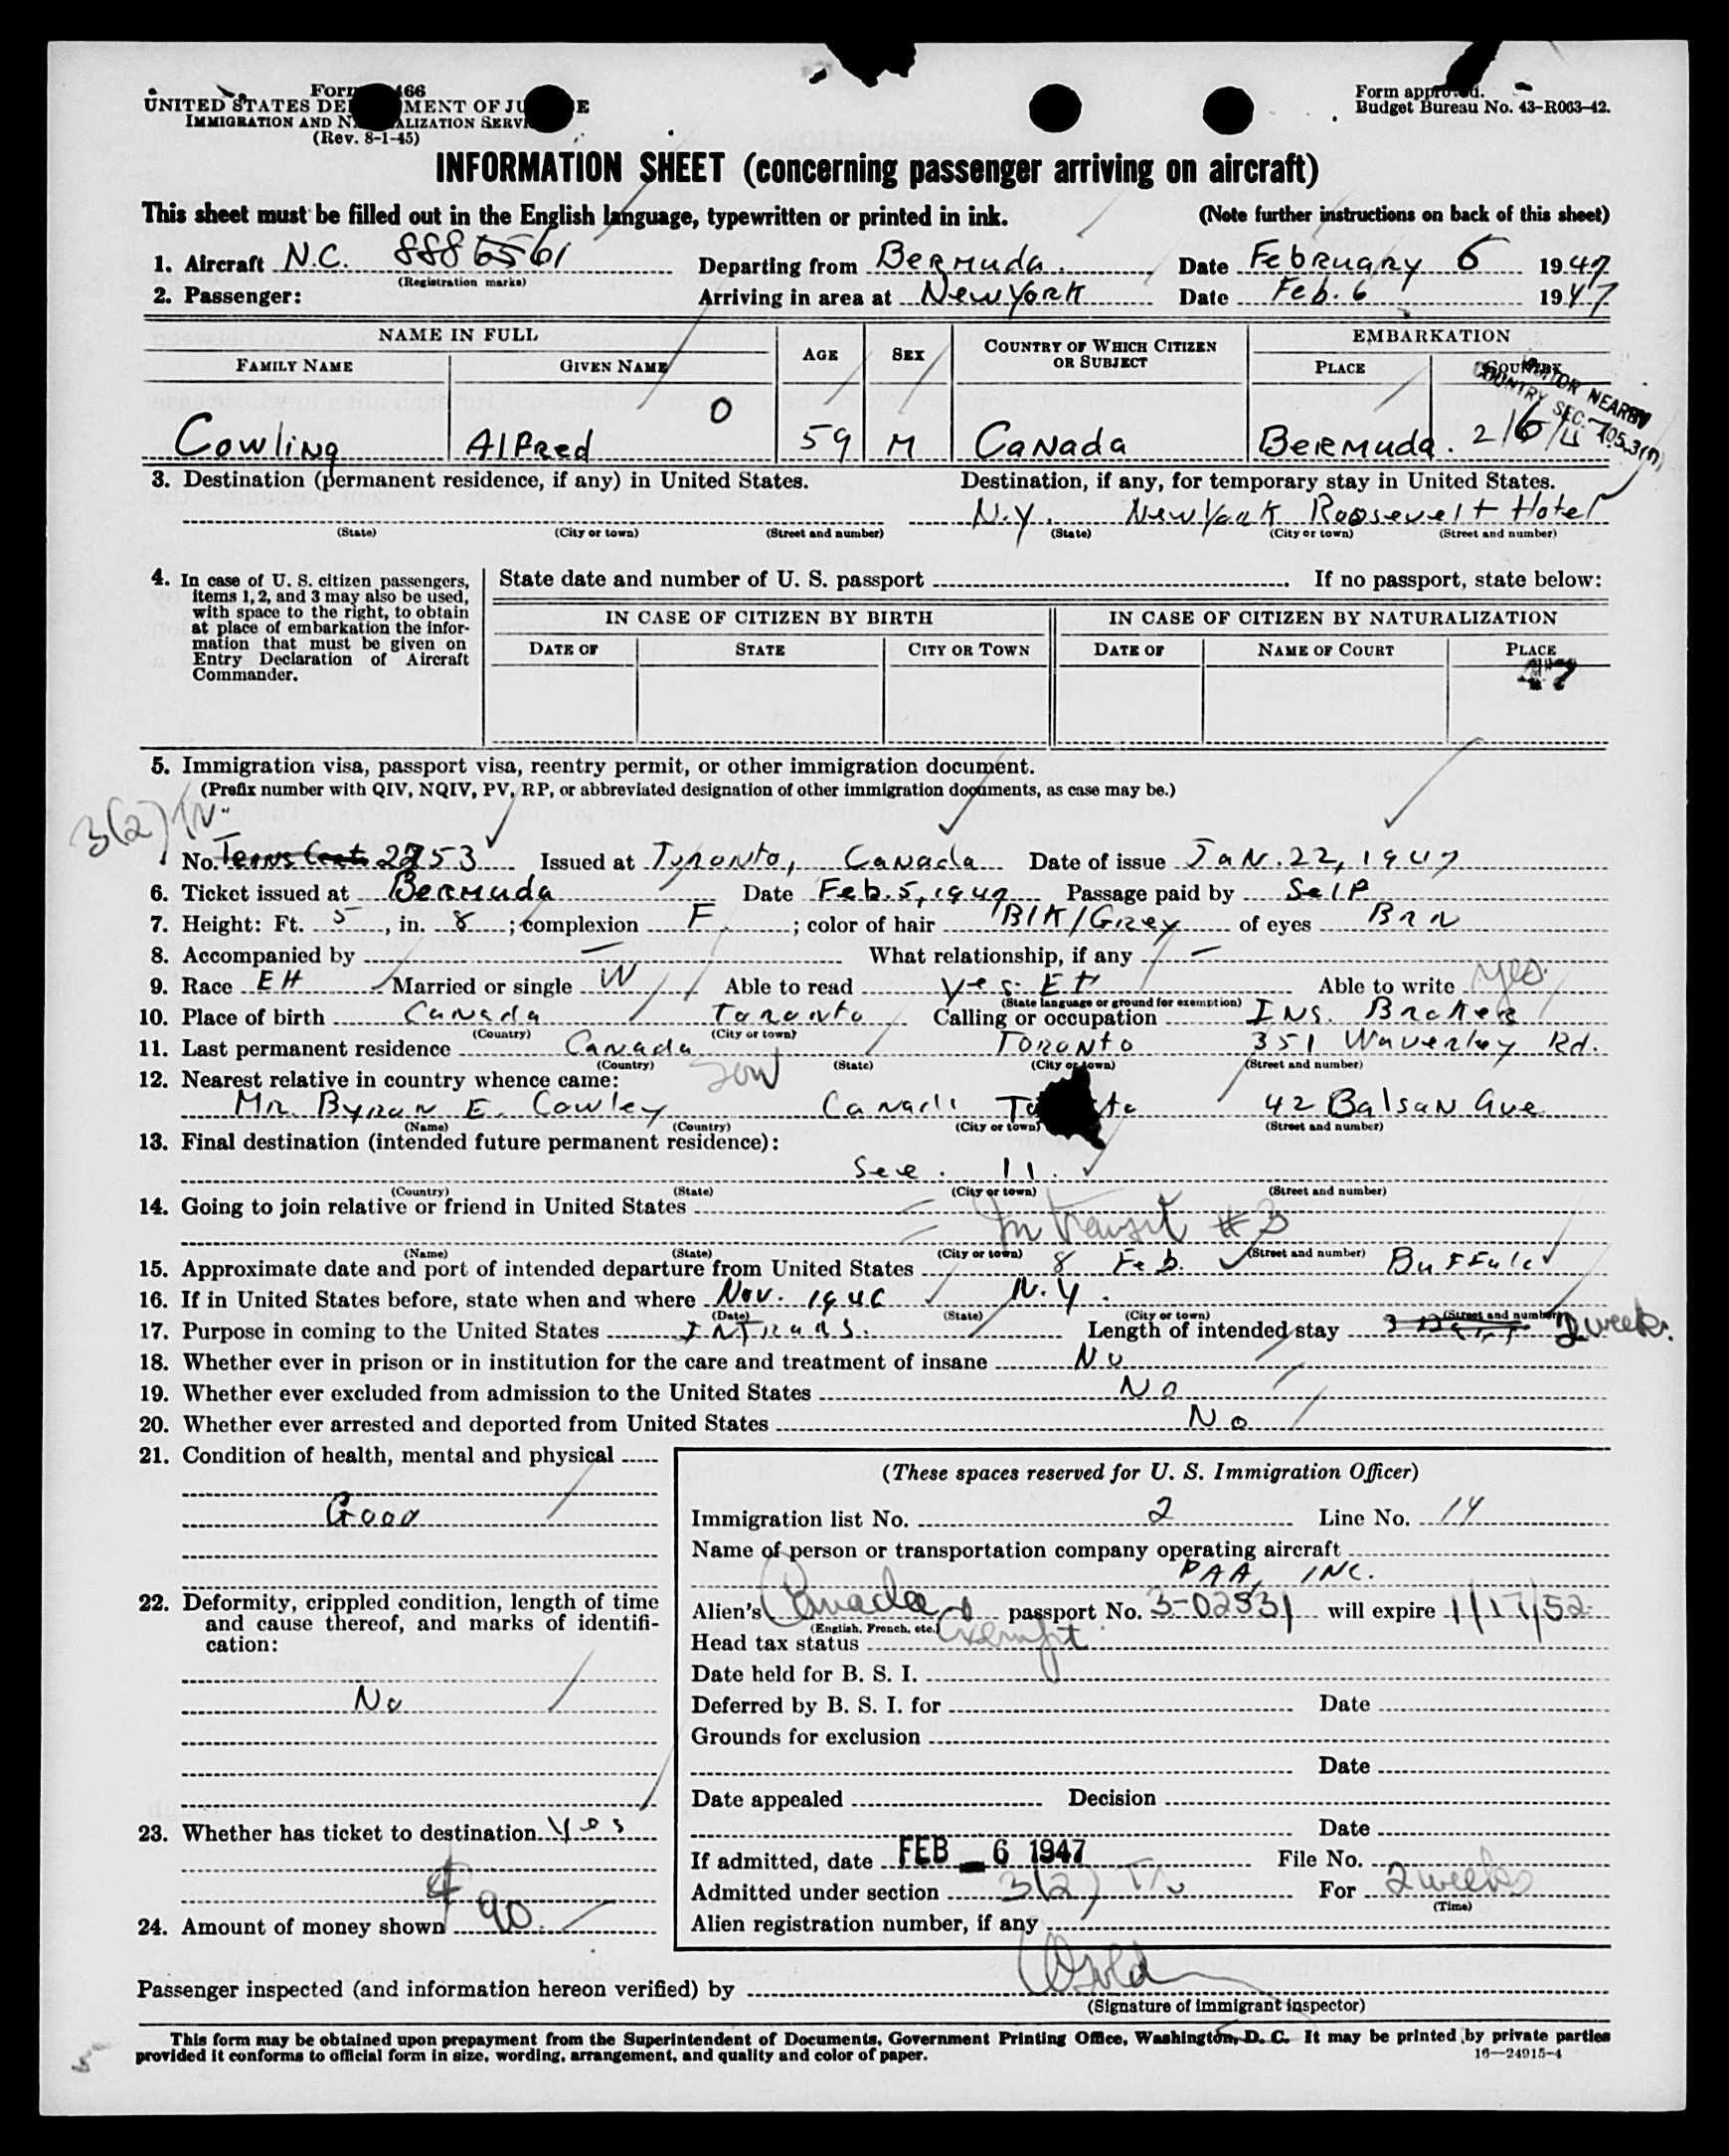 Form 466
Form approved.
UNITED STATES DEPARTMENT OF JUSTICE
Budget Bureau No. 43-R063-42.
IMMIGRATION AND NATURALIZATION SERVICE
(Rev. 8-1-45)
INFORMATION SHEET (concerning passenger arriving on aircraft)
This sheet must be filled out in the English language, typewritten or printed in ink. (Note further instructions on back of this sheet)
1. Aircraft N.C. Departing from Bermuda. Date February 6 1947
(Registration marks)
2. Passenger: Arriving in area at New York Date Feb. 6 1947
NAME IN FULL AGE SEX COUNTRY OF WHICH CITIZEN OR SUBJECT EMBARKATION
FAMILY NAME GIVEN NAME PLACE COUNTRY
NEARBY
COUNTRY SEC.
O
Cowling Alfred 59 M Canada Bermuda. 2/6/4
3. Destination (permanent residence, if any) in United States. Destination, if any, for temporary stay in United States.
N.Y. New York Roosevelt Hotel
(State) (City or town) (Street and number) (State) (City or town) (Street and number)
4. In case of U. S. citizen passengers, items 1, 2, and 3 may also be used, with space to the right, to obtain at place of embarkation the information that must be given on Entry Declaration of Aircraft Commander.
State date and number of U. S. passport If no passport, state below:
IN CASE OF CITIZEN BY BIRTH IN CASE OF CITIZEN BY NATURALIZATION
DATE OF STATE CITY OR TOWN DATE OF NAME OF COURT PLACE
5. Immigration visa, passport visa, reentry permit, or other immigration document.
(Prefix number with QIV, NQIV, PV, RP, or abbreviated designation of other immigration documents, as case may be.)
3(2)
No. 2253 Issued at Toronto, Canada Date of issue Jan. 22, 1947
6. Ticket issued at Bermuda Date Feb. 5, 1947 Passage paid by Self
7. Height: Ft. 5, in. 8; complexion F; color of hair Blk/Grey of eyes Brn
8. Accompanied by — What relationship, if any —
9. Race EH Married or single W Able to read yes. Able to write yes
(State language or ground for exemption)
10. Place of birth Canada Toronto Calling or occupation Ins. Broker
(Country) (City or town)
11. Last permanent residence Canada Toronto 351 Waverley Rd.
(Country) (State) (City or town) (Street and number)
12. Nearest relative in country whence came: son
Mr. Byron E. Cowley 42 Balsan Ave
(Name) (Country) (City or town) (Street and number)
13. Final destination (intended future permanent residence):
See. 11.
(Country) (State) (City or town) (Street and number)
14. Going to join relative or friend in United States
In transit #3
(Name) (State) (City or town) (Street and number)
15. Approximate date and port of intended departure from United States 8 Feb. Buffalo
16. If in United States before, state when and where Nov. 1946 N.Y.
(Date) (State) (City or town) (Street and number)
17. Purpose in coming to the United States Intrans. Length of intended stay 3 Days 2 weeks.
18. Whether ever in prison or in institution for the care and treatment of insane No
19. Whether ever excluded from admission to the United States No
20. Whether ever arrested and deported from United States No
21. Condition of health, mental and physical
Good
22. Deformity, crippled condition, length of time and cause thereof, and marks of identification:
No
23. Whether has ticket to destination Yes
24. Amount of money shown $ 90.
(These spaces reserved for U. S. Immigration Officer)
Immigration list No. 2 Line No. 14
Name of person or transportation company operating aircraft
PAA, INC.
Alien's Canada passport No. 3-02531 will expire 1/17/52
(English, French, etc.)
Head tax status Exempt
Date held for B. S. I.
Deferred by B. S. I. for Date
Grounds for exclusion
Date
Date appealed Decision
Date
If admitted, date FEB 6 1947 File No.
Admitted under section 3(2) For 2 weeks
(Time)
Alien registration number, if any
Passenger inspected (and information hereon verified) by
(Signature of immigrant inspector)
This form may be obtained upon prepayment from the Superintendent of Documents, Government Printing Office, Washington, D. C. It may be printed by private parties
provided it conforms to official form in size, wording, arrangement, and quality and color of paper. 16—24915-4
5